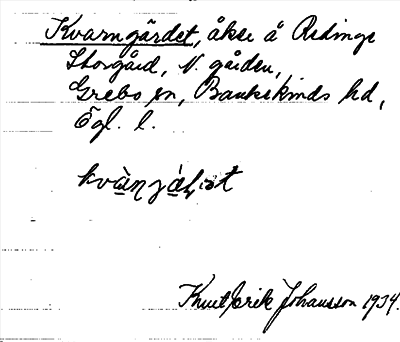 Kvarngärdet, åker å Redinge
Storgård, N. gården,
Grebo sn, Bankekinds hd,
Ögl. l.
Knut Erik Johansson 1934.